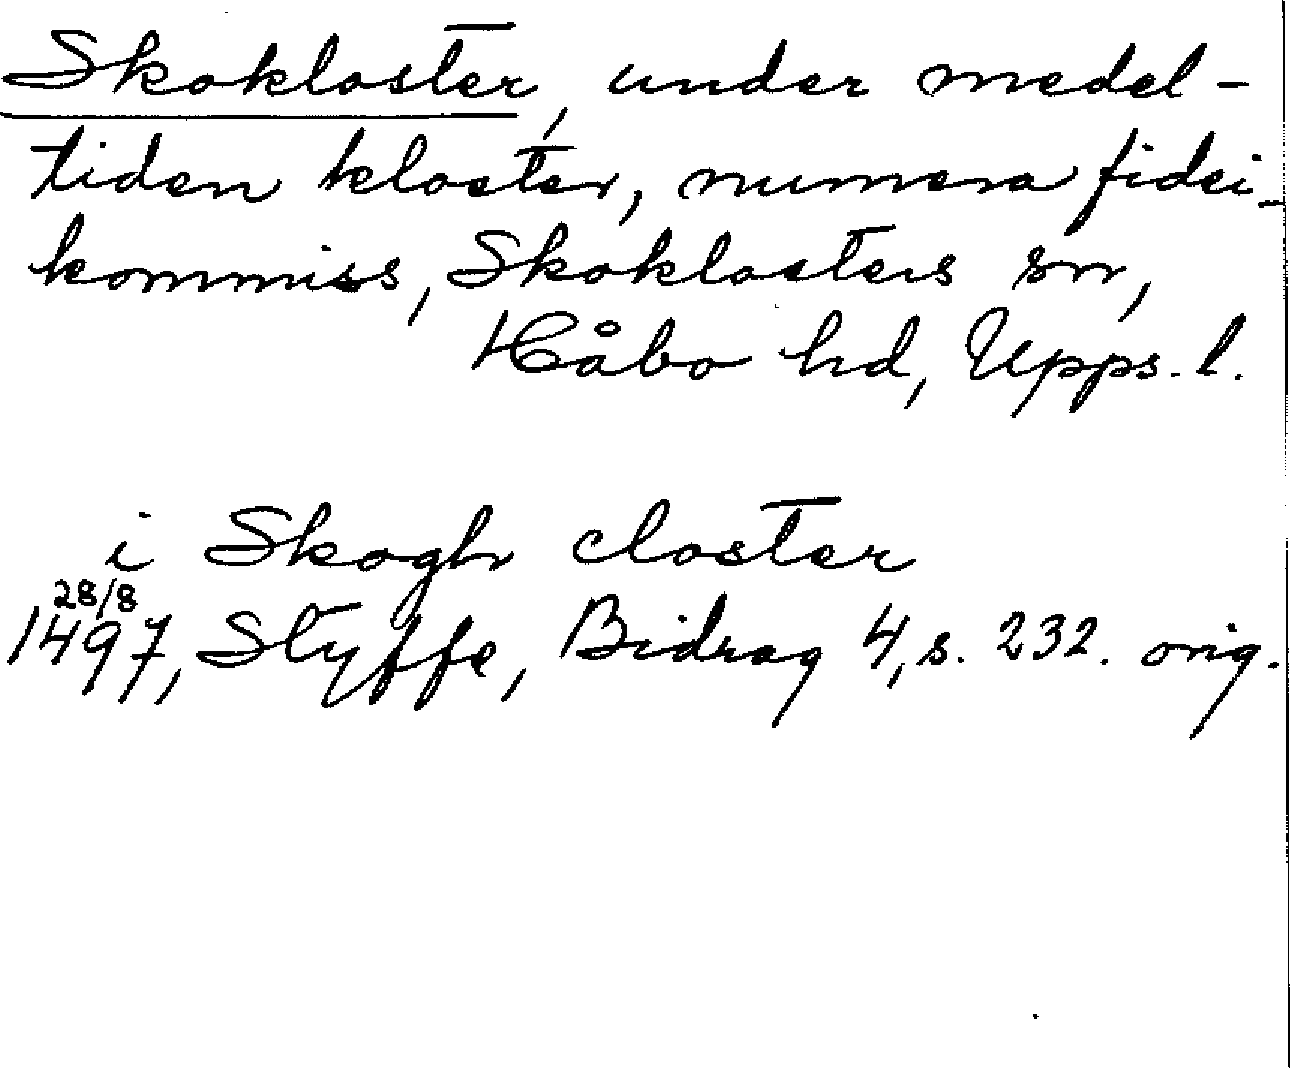 Skokloster, under medel-
tiden kloster, numera fidei-
kommiss, Skoklosters sn,
Håbo hd, Upps. l.
i Skogh closter
28/8
1497, Styffe, Bidrag 4, s. 232. orig.